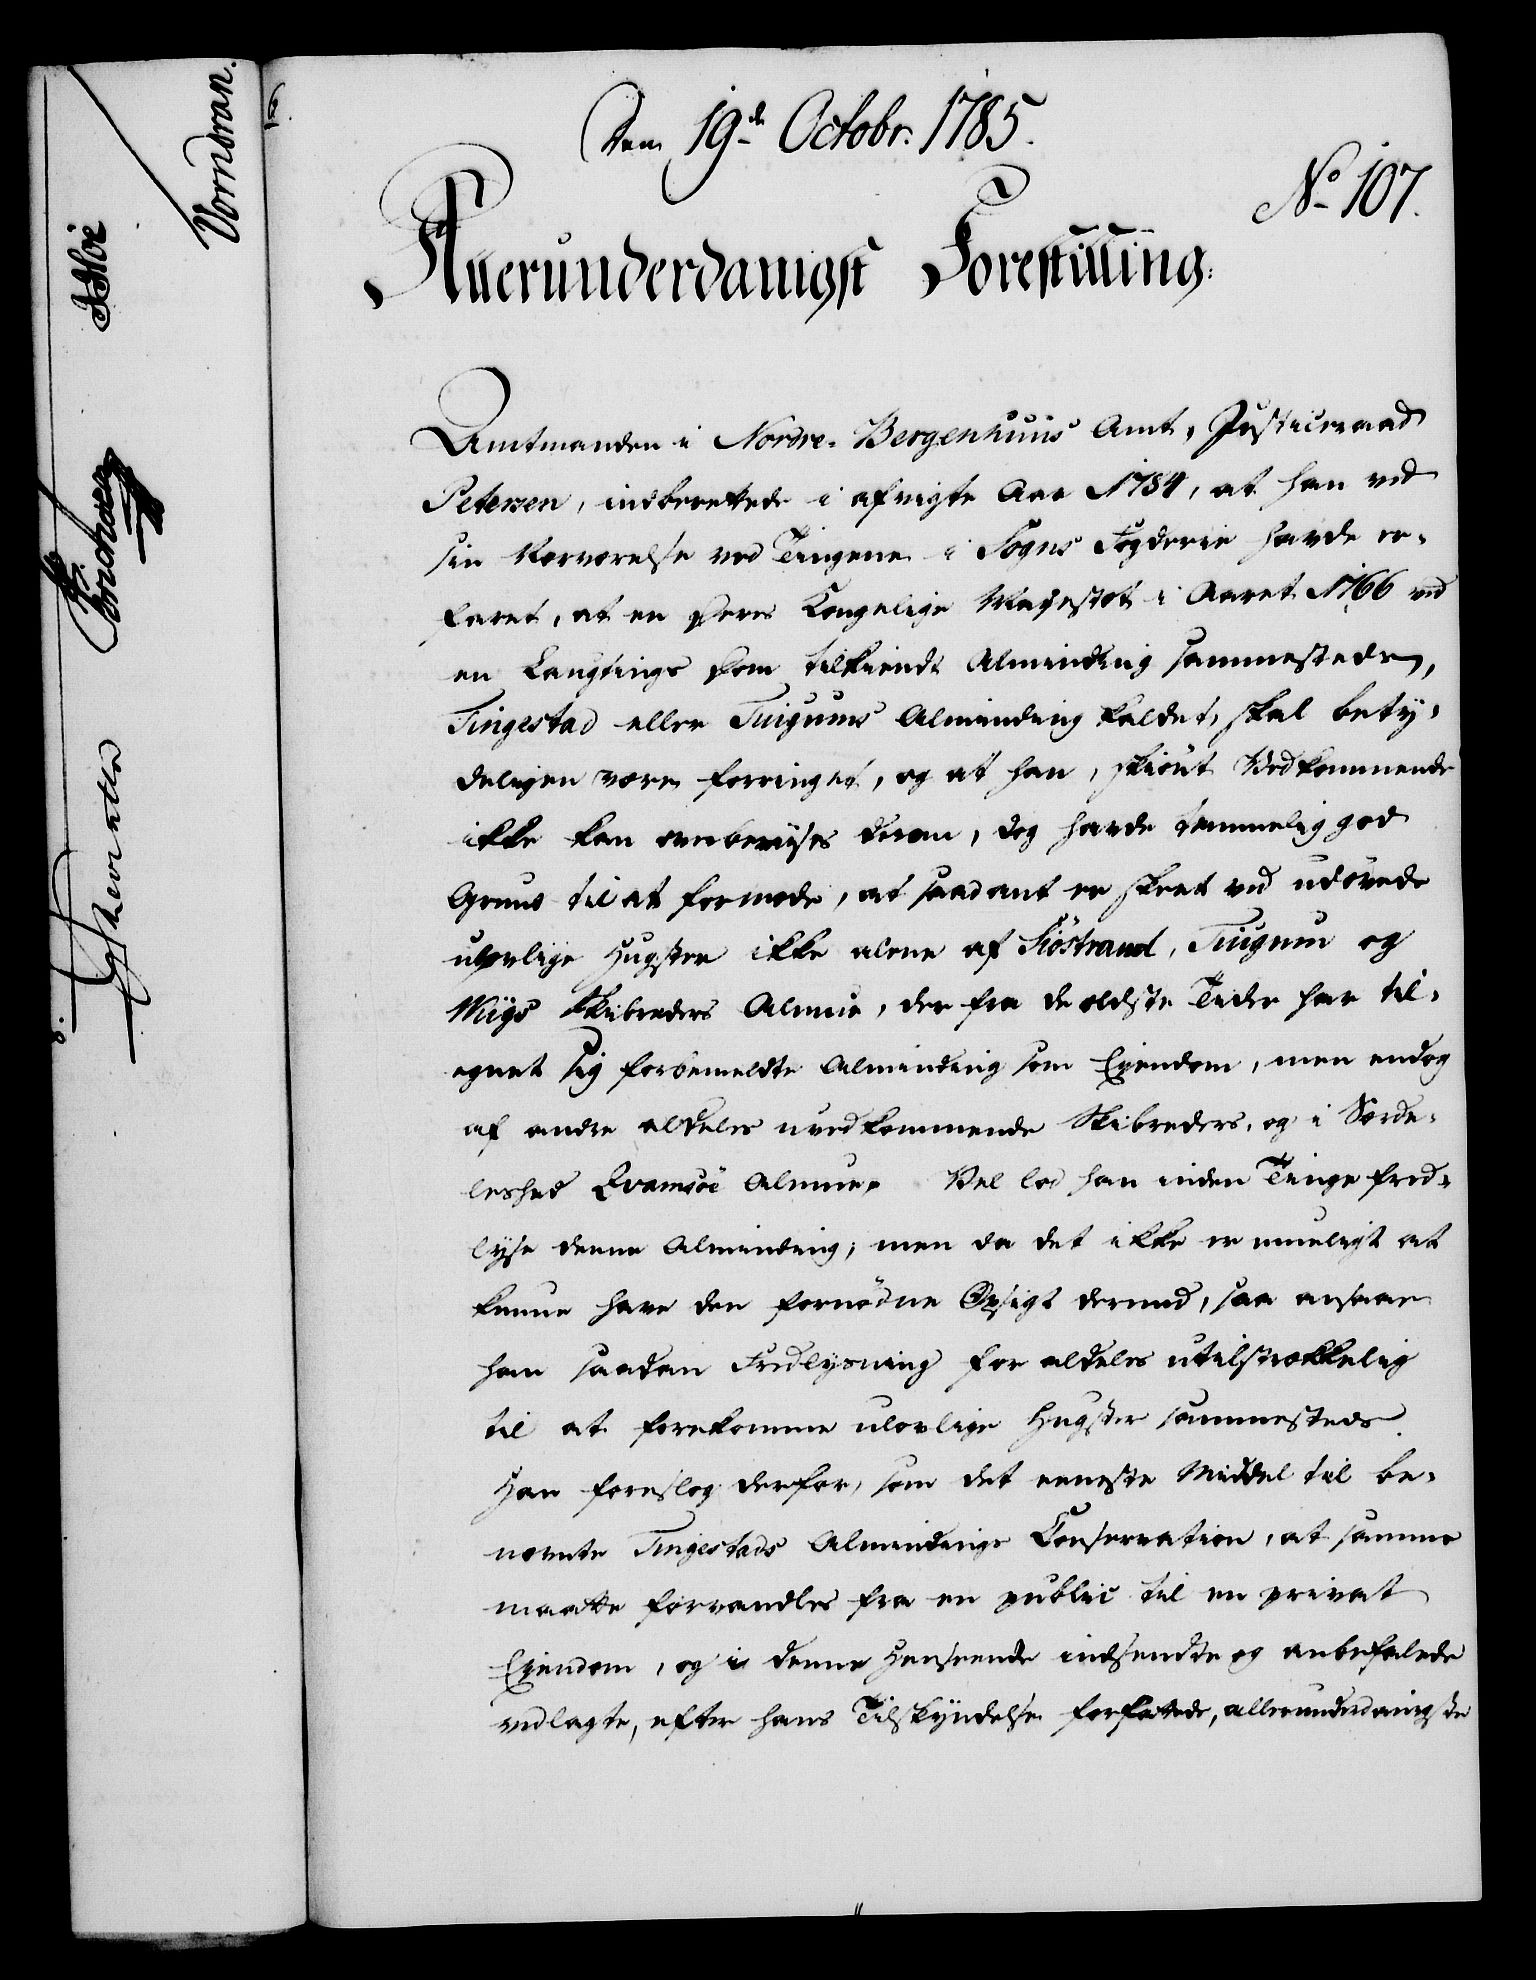 Vorndran.
Den 19de Octobr. 1785.
No 107.
Allerunderdanigst Forestilling.
Amtmanden i Nordre-Bergenhuus Amt, Justiceraad
Petersen, indberettede i afvigte Aar 1784, at han ved
sin Nærværelse ved Tingene i Sogns Fogderie havde er-
faret, at en Deres Kongelige Majestæt i Aaret 1766 ved
en Laugtings Dom tilkiendt Alminding sammesteds,
Tingestad eller Tuigums Alminding kaldet, skal bety-
deligen være forringet, og at han, skiönt Vedkommende
ikke kan overbeviises derom, dog havde temmelig god
Grund til at formode, at saadant er skeet ved udövede
ulovlige Hugster ikke alene af Siöstrand, Tuigum og
Wiigs Skibreders Almue, der fra de ældste Tider har til-
egnet sig forbemeldte Alminding som Eiendom, men endog
af andre aldeles uvedkommende Skibreders, og i Særde-
leshed Qvamsöe Almue. Vel lod han inden Tinge fred-
lyse denne Alminding; men da det ikke er mueligt at
kunne have den fornödne Opsigt dermed, saa ansaae
han saadan Fredlysning for aldeles utilstrækkelig
til at forekomme ulovlige Hugster sammesteds.
Han foreslog derfor, som det eeneste Middel til be-
nævnte Tingestads Almindings Conservation, at samme
maatte forvandles fra en public til en privat
Eiendom, og i denne Henseende indsendte og anbefalede
vedlagte, efter hans Tilskyndelse forfattede, allerunderdanigste